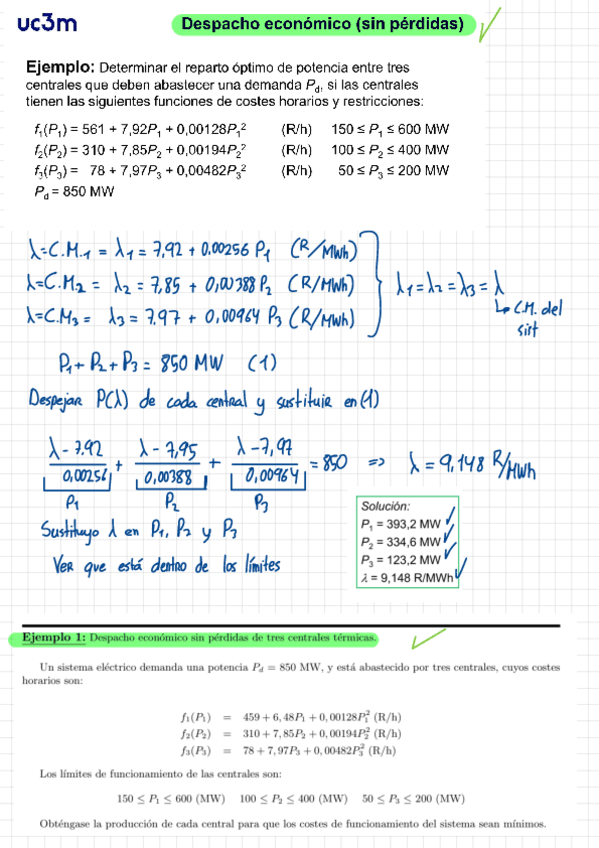 uc3m
Despacho económico (sin pérdidas)
Ejemplo: Determinar el reparto óptimo de potencia entre tres
centrales que deben abastecer una demanda Pd, si las centrales
tienen las siguientes funciones de costes horarios y restricciones:
f₁(P₁) = 561 + 7,92P₁ + 0,00128P₁² (R/h) 150 ≤ P₁ ≤ 600 MW
f₂(P₂) = 310 + 7,85P₂ + 0,00194P₂² (R/h) 100 ≤ P₂ ≤ 400 MW
f₃(P₃) = 78 + 7,97P₃ + 0,00482P₃² (R/h) 50 ≤ P₃ ≤ 200 MW
Pd = 850 MW
λ=C.M.₁ = λ₁ = 7,92 + 0.00256 P₁ (R/MWh)
λ=C.M₂ = λ₂ = 7,85 + 0,00388 P₂ (R/MWh)
λ=C.M₃ = λ₃ = 7.97 + 0,00964 P₃ (R/MWh)
λ₁=λ₂=λ₃=λ
↳ C.M. del
sist
P₁+P₂+P₃ = 850 MW (1)
Despejar P(λ) de cada central y sustituir en (1)
λ-7.92 / 0,00256 + λ-7,95 / 0,00388 + λ-7,97 / 0,00964 = 850 => λ = 9,148 R/MWh
P₁ P₂ P₃
Sustituyo λ en P₁, P₂ y P₃
Ver que está dentro de los límites
Solución:
P₁ = 393,2 MW
P₂ = 334,6 MW
P₃ = 123,2 MW
λ = 9,148 R/MWh
Ejemplo 1: Despacho económico sin pérdidas de tres centrales térmicas.
Un sistema eléctrico demanda una potencia Pd = 850 MW, y está abastecido por tres centrales, cuyos costes
horarios son:
f₁(P₁) = 459 + 6,48P₁ + 0,00128P₁² (R/h)
f₂(P₂) = 310 + 7,85P₂ + 0,00194P₂² (R/h)
f₃(P₃) = 78 + 7,97P₃ + 0,00482P₃² (R/h)
Los límites de funcionamiento de las centrales son:
150 ≤ P₁ ≤ 600 (MW) 100 ≤ P₂ ≤ 400 (MW) 50 ≤ P₃ ≤ 200 (MW)
Obténgase la producción de cada central para que los costes de funcionamiento del sistema sean mínimos.